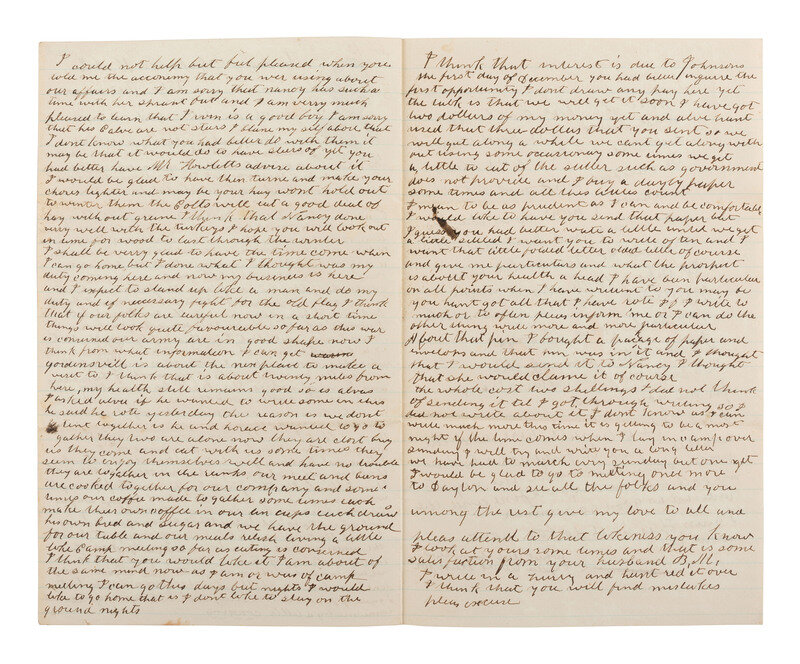 I could not help but feel pleased when you
told me the acconomy that you wer using about
our affairs and I am sorry that nancy has such a
time with her and I am verry much
pleased to learn that Irvin is a good boy I am sorry
that his Calvs are not stears I blame my self about that
I dont know what you had better do with them it
may be that it would do to have stears of yet you
had better have Mr advise about it
I would be glad to have thin and make your
chores lighter and may be your hay wont hold out
to winter them the Colts will eat a good deal of
hay without grane I think that Nancy done
verry well with the turkeys I hope you will look out
in time for wood to last through the winter
I shall be verry glad to have the time come when
I can go home but I done what I thought was my
duty coming here and now my business is here
and I expect to stand up like a man and do my
duty and if necessary fight for the old flag I think
that if our folks are careful now in a short time
things will look quite favourable so far as this war
is conserned our army are in good shape now I
think from what information I can get
gordensvill is about the next place to make a
visit to I think that is about twenty miles from
here, my health still remains good so is alvas
I asked alva if he wanted to write some in this
he said he rote yesterday the reason is we dont
tent together is he and horace wanted to go to
gather they two are alone now they are clost by
us they come and eat with us some times they
seem to enjoy themselves well and have no trouble
they are together on the rords our meet and beens
are cooked together for our company and some
times our coffee made to gather some times each
make their own coffee in our tin cups each draws
his own bred and sugar and we have the ground
for our table and our meals relish living a little
like Camp meeting so far as eating is conserned
I think that you would like it I am about of
the same mind now as I am or was of camp
meeting I can go this days but nights I would
like to go home that is I dont like to stay on the
ground nights
I think that interest is due to Johnsons
the first day of December you had better inquire the
first opportunity I dont draw any pay here yet
the talk is that we will get it soon I have got
two dollars of my money yet and alve hant
used that three dollars that you sent so we
will get along a while we cant get along with
out using some occurency some times we get
a little to eat of the sutler such as government
does not provide and I buy a paper
some times and all this a little counts
I mean to be as prudent as I can and be comfortable
I would like to have you send that paper but
I guess you had better wate a little until we get
a little setled I want you to write often and I
want that little folded letter of course
and give me particulars and what the prospect
is about your health a head I have ben particular
on all points when I have writent to you may be
you hant got all that I have rote if I write to
much or to often pleas inform me or I can do the
other thing write more and more particular
About that pen I bought a pacage of paper and
envelops and that was in it and I thought
that I would send it to Nancy I thought
that she would clame it of course
the whole cost two shillings I did not think
of sending it tel I got through writing so I
did not write about it I dont know as I can
write much more this time it is getting to be a most
night if the time comes when I lay in camp over
sunday I will try and write you a long letter
we have had to march evry sunday but one yet
I would be glad to go to meeting once more
to Daylon and see all the folks and you
among the rest give my love to all and
pleas attend to that likeness you know
I look at yours some times and that is some
satisfaction from your husband B, M,
I write in a hurry and hant red it over
I think that you will find mistakes
pleas excuse